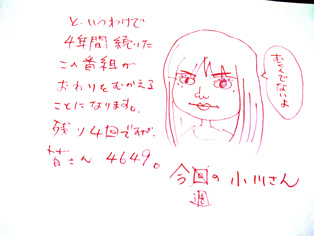 と、いうわけで
4年間続いた
この番組が
おわりをむかえる
ことになります。
残り4回ですが、
皆さん 4649。
むくんでないよ
今回の小川さん
週